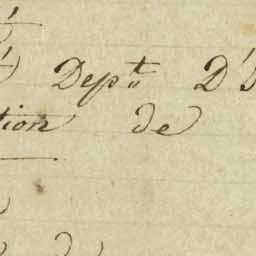 Dept D'
tion de